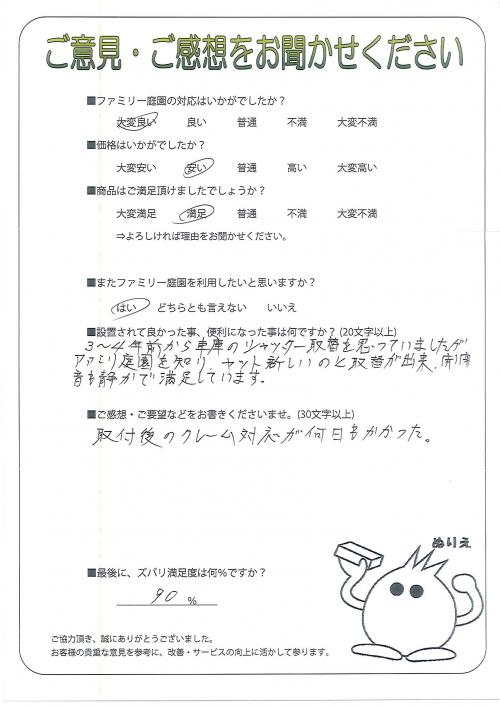 ご意見・ご感想をお聞かせください
■ファミリー庭園の対応はいかがでしたか？
大変良い 良い 普通 不満 大変不満
■価格はいかがでしたか？
大変安い 安い 普通 高い 大変高い
■商品はご満足頂けましたでしょうか？
大変満足 満足 普通 不満 大変不満
⇒よろしければ理由をお聞かせください。
■またファミリー庭園を利用したいと思いますか？
はい どちらとも言えない いいえ
■設置されて良かった事、便利になった事は何ですか？(20文字以上)
3～4年前から車庫のシャッター取替を思っていましたが
ファミリ庭園を知り、ヤット新しいのと取替が出来、開閉
音も静かで満足しています。
■ご感想・ご要望などをお書きくださいませ。(30文字以上)
取付後のクレーム対応が何日もかかった。
ぬりえ
■最後に、ズバリ満足度は何％ですか？
90 %
ご協力頂き、誠にありがとうございました。
お客様の貴重な意見を参考に、改善・サービスの向上に活かして参ります。